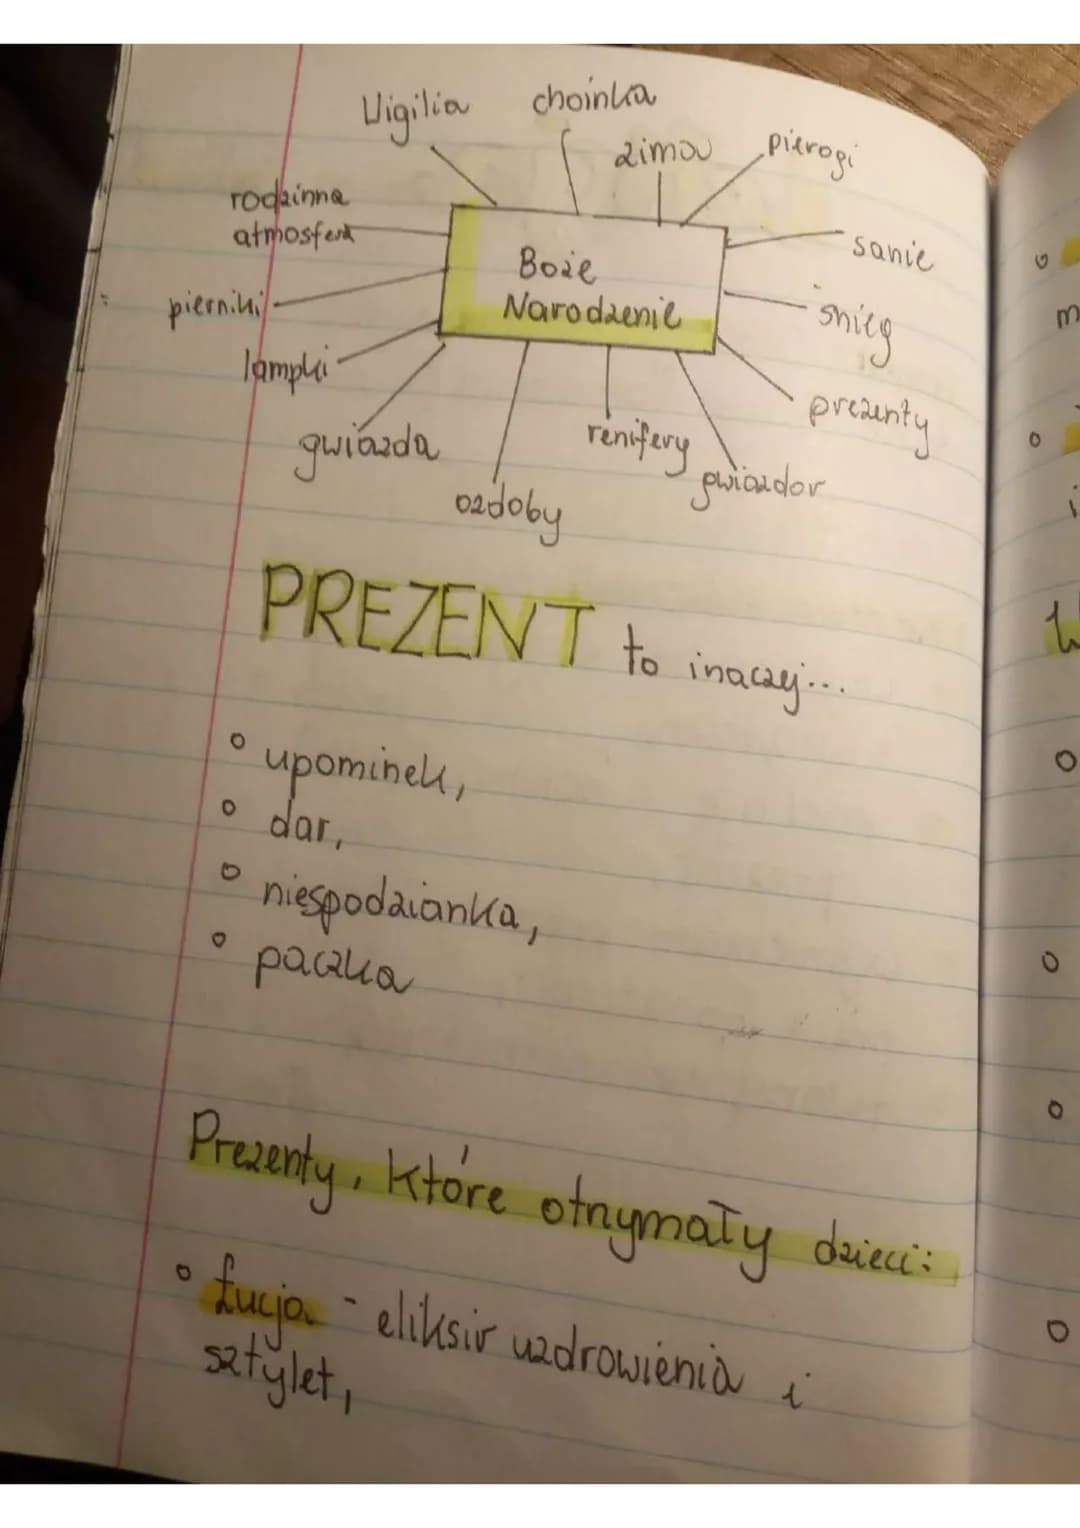 Wigilia
choinka
zima
pierogi
rodzinna
atmosfera
sanie
Boże
Narodzenie
pierniki
śnieg
lampki
prezenty
gwiazda
renifery
gwiazdor
ozdoby
PREZENT to inaczej...
upominek,
dar,
niespodzianka,
paczka
Prezenty, które otrzymały dzieci:
Łucja - eliksir uzdrowienia i
sztylet,